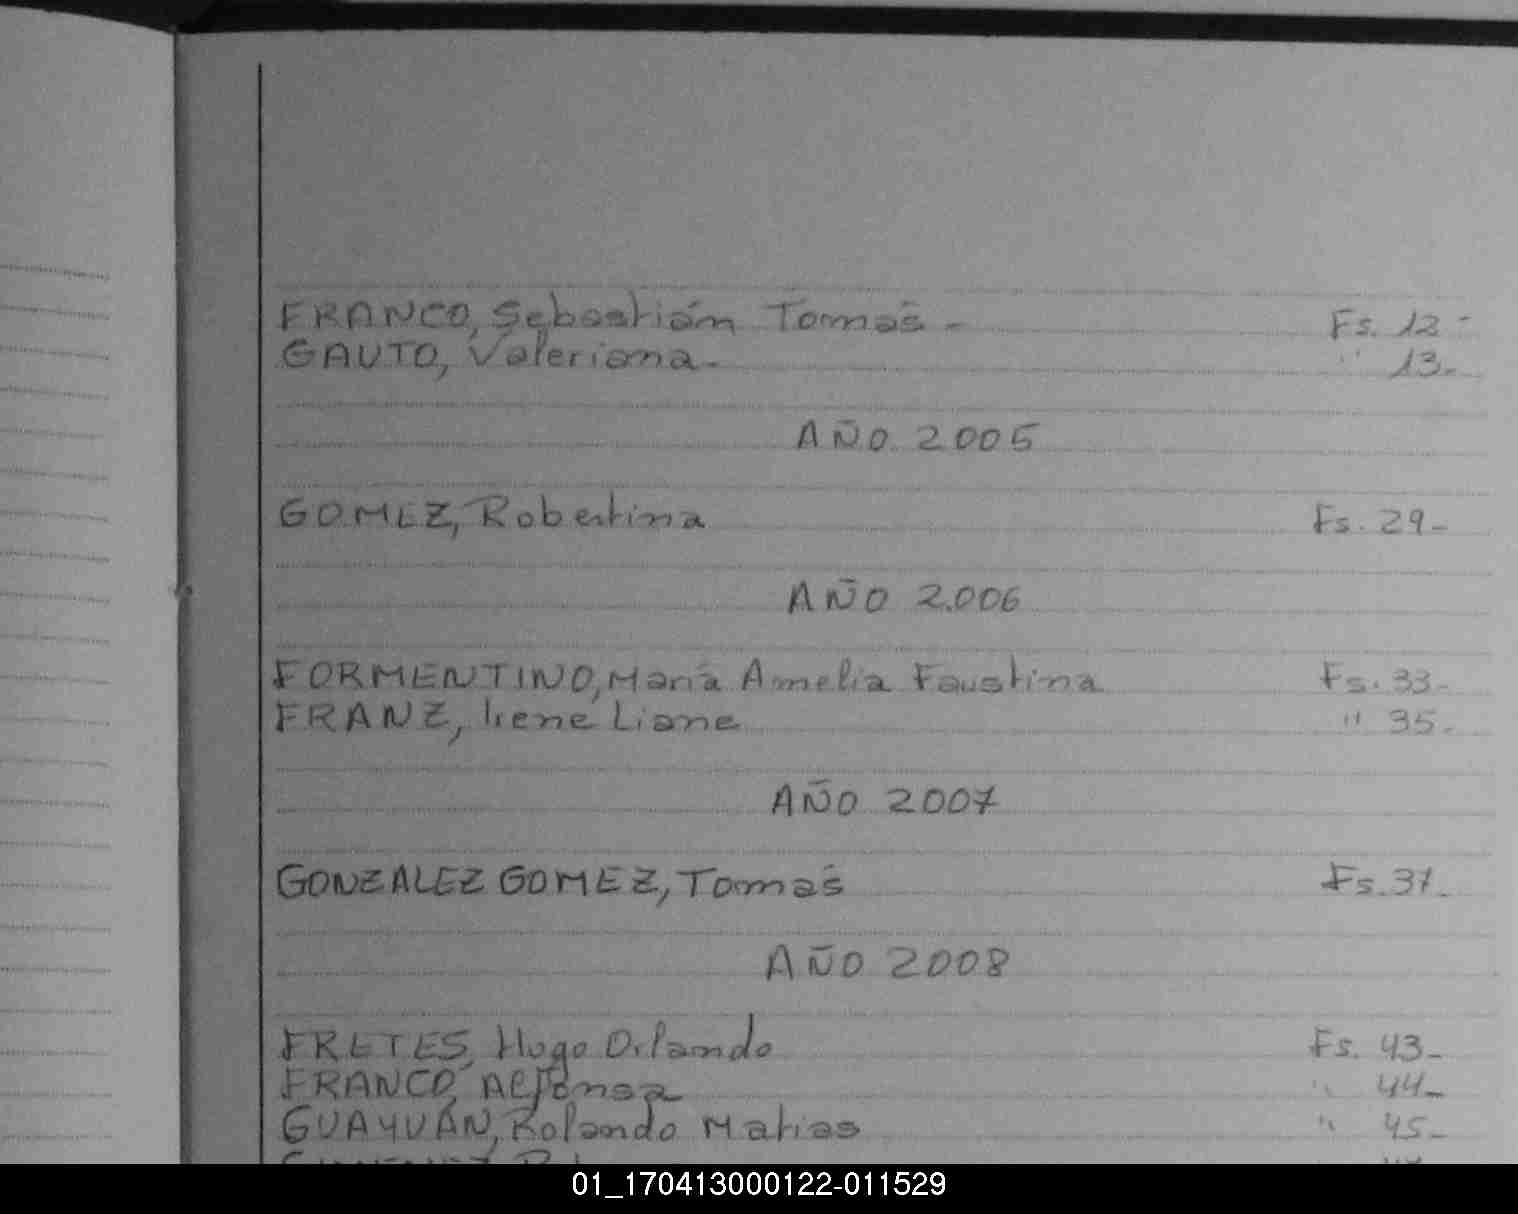 FRANCO, Sebastián Tomás - Fs. 12 -
GAUTO, Valeriana - " 13 -
AÑO 2005
GOMEZ, Robertina Fs. 29 -
AÑO 2.006
FORMENTINO, María Amelia Faustina Fs. 33 -
FRANZ, Irene Liane " 35 -
AÑO 2007
GONZALEZ GOMEZ, Tomás Fs. 37 -
AÑO 2008
FRETES, Hugo Orlando Fs. 43 -
FRANCO, Alfonsa " 44 -
GUAYUÁN, Rolando Matias " 45 -
01_170413000122-011529